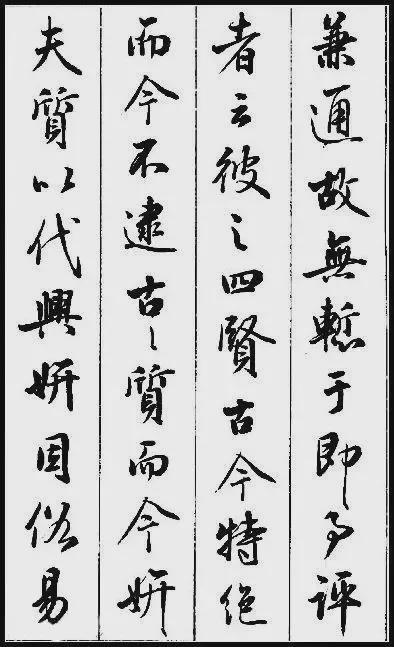 兼通故無慙于即事評
者云彼之四賢古今特絕
而今不逮古〻質而今妍
夫質以代興妍因俗易